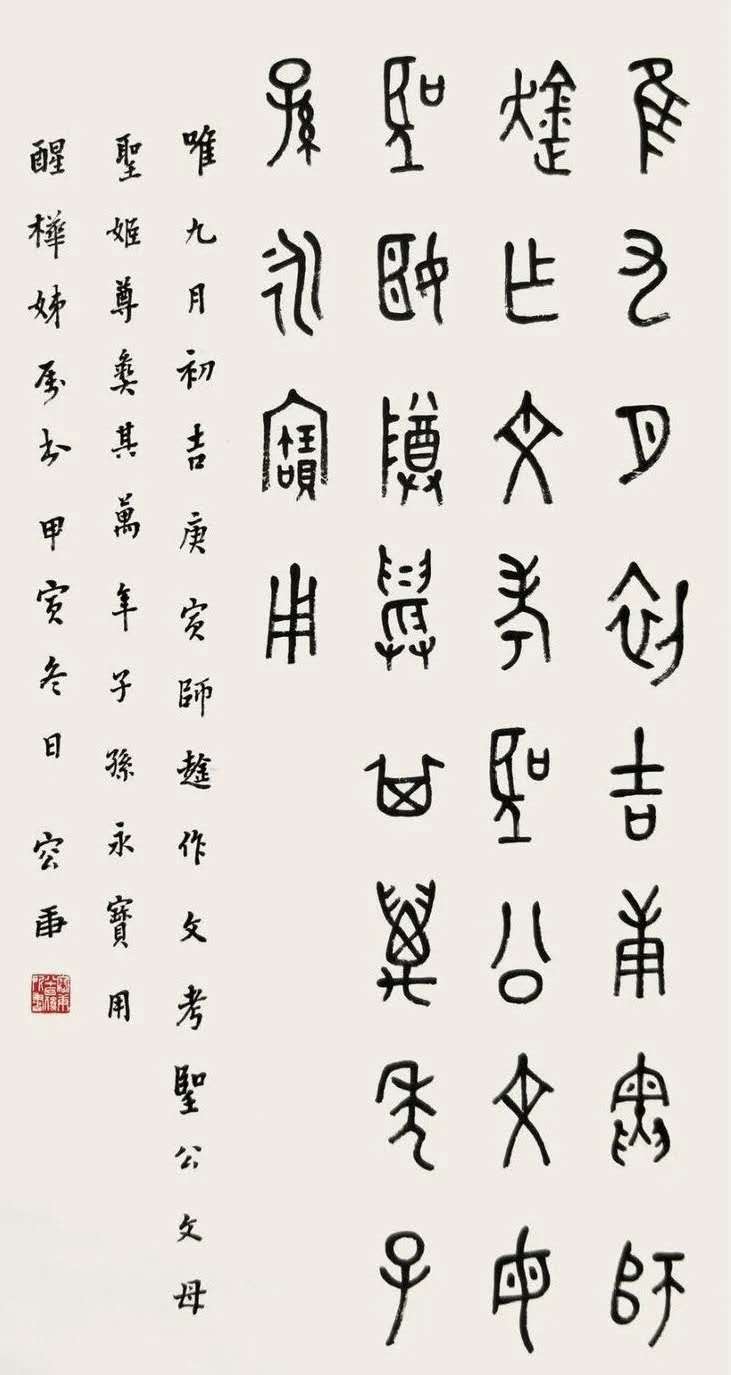 隹九月初吉庚寅師
趛乍文考聖公文母
聖姬𨺅彝其萬年子
孫永寶用
唯九月初吉庚寅師趛作文考聖公文母
聖姬尊彝其萬年子孫永寶用
醒樺姊属書甲寅冬日 容庚